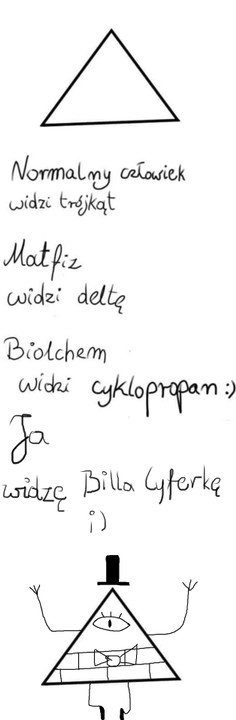 Normalny człowiek
widzi trójkąt
Matfiz
widzi deltę
Biolchem
widzi cyklopropan :)
Ja
widzę Billa Cyferkę
;)